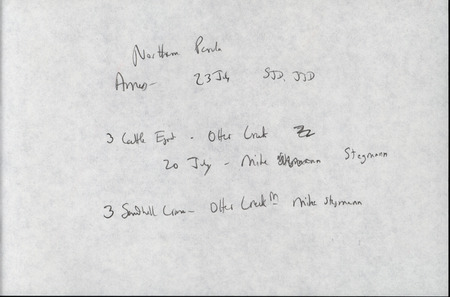 Northern Parula
23 July SJD. JJD
3 Cattle Egret - Otter Creek
20 July - Mike Stegmann
3 Sandhill Crane - Otter Creek Mike Stegmann